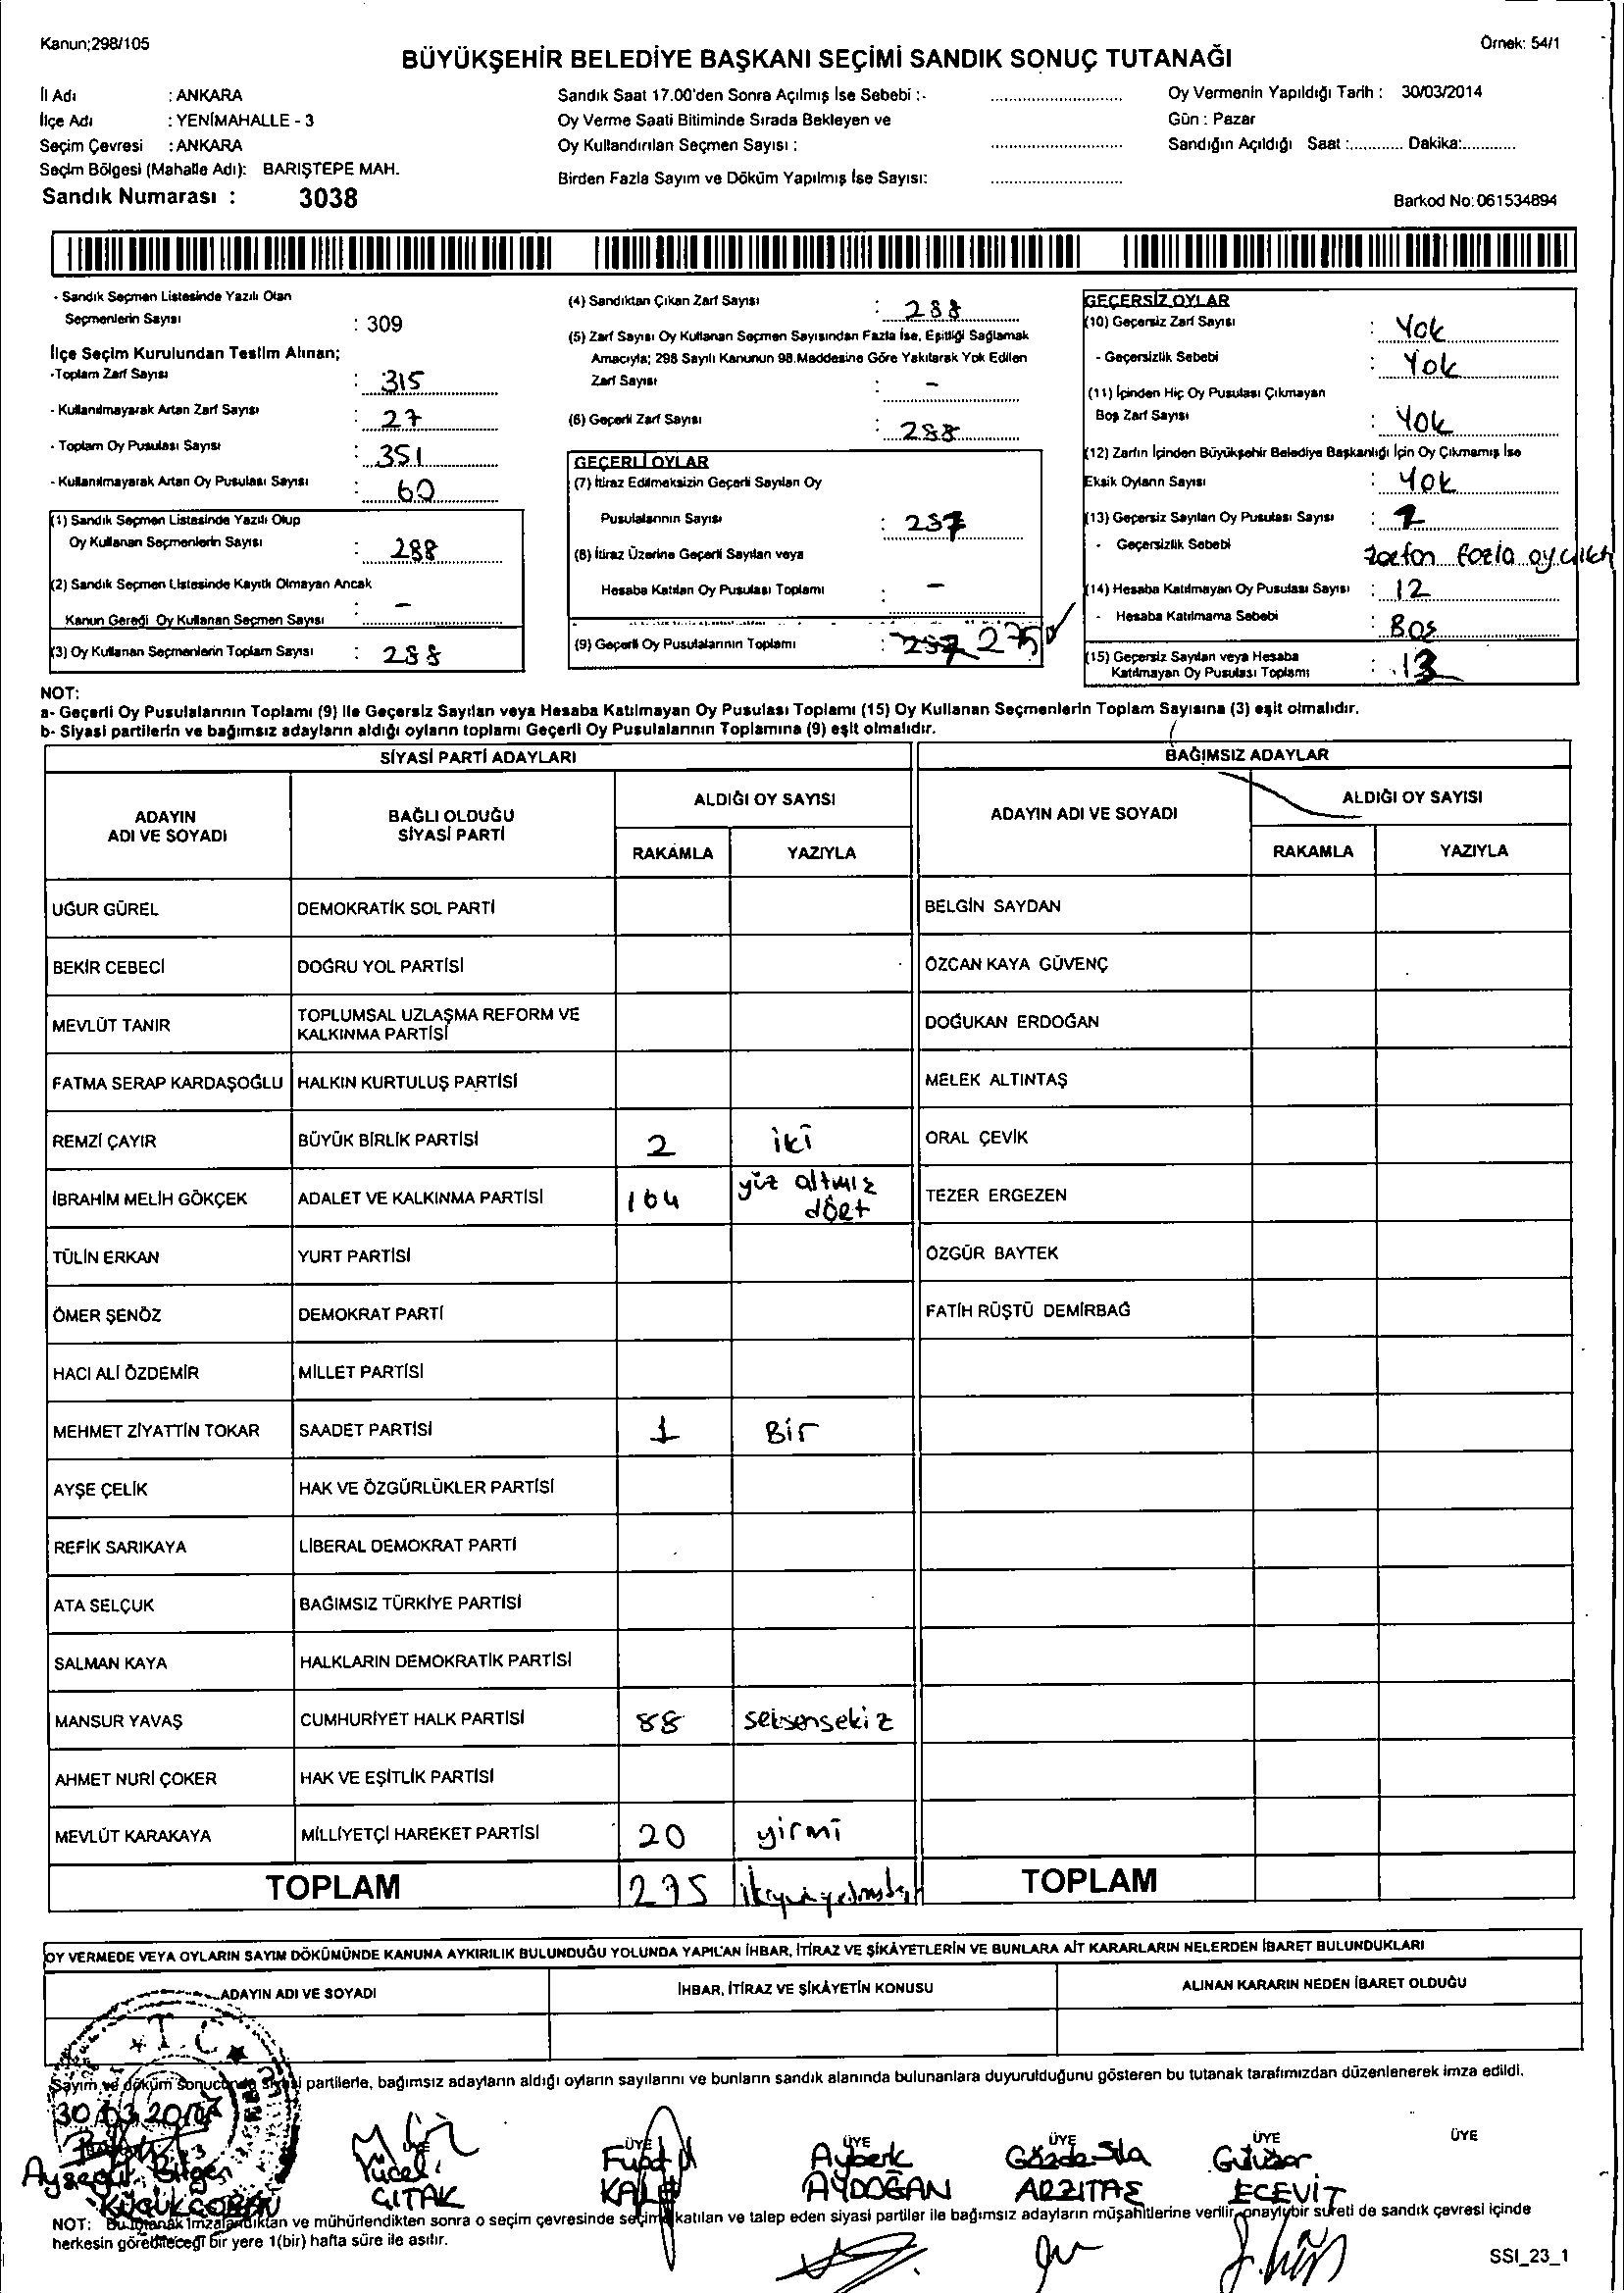 Kanun;298/105
Örnek: 54/1
BÜYÜKŞEHİR BELEDİYE BAŞKANI SEÇİMİ SANDIK SONUÇ TUTANAĞI
İl Adı : ANKARA
İlçe Adı : YENİMAHALLE - 3
Seçim Çevresi : ANKARA
Seçim Bölgesi (Mahalle Adı): BARIŞTEPE MAH.
Sandık Numarası : 3038
Sandık Saat 17.00'den Sonra Açılmış İse Sebebi :-
Oy Verme Saati Bitiminde Sırada Bekleyen ve
Oy Kullandırılan Seçmen Sayısı :
Birden Fazla Sayım ve Döküm Yapılmış İse Sayısı:
Oy Vermenin Yapıldığı Tarih : 30/03/2014
Gün : Pazar
Sandığın Açıldığı Saat :............ Dakika:............
Barkod No:061534894
- Sandık Seçmen Listesinde Yazılı Olan
Seçmenlerin Sayısı : 309
İlçe Seçim Kurulundan Teslim Alınan;
-Toplam Zarf Sayısı : 315
- Kullanılmayarak Artan Zarf Sayısı : 27
- Toplam Oy Pusulası Sayısı : 351
- Kullanılmayarak Artan Oy Pusulası Sayısı : 60
(1) Sandık Seçmen Listesinde Yazılı Olup
Oy Kullanan Seçmenlerin Sayısı : 288
(2) Sandık Seçmen Listesinde Kayıtlı Olmayan Ancak
Kanun Gereği Oy Kullanan Seçmen Sayısı : -
(3) Oy Kullanan Seçmenlerin Toplam Sayısı : 288
(4) Sandıktan Çıkan Zarf Sayısı : 288
(5) Zarf Sayısı Oy Kullanan Seçmen Sayısından Fazla İse, Eşitliği Sağlamak
Amacıyla; 298 Sayılı Kanunun 98.Maddesine Göre Yakılarak Yok Edilen
Zarf Sayısı : -
(6) Geçerli Zarf Sayısı : 288
GEÇERLİ OYLAR
(7) İtiraz Edilmeksizin Geçerli Sayılan Oy
Pusulalarının Sayısı : 287
(8) İtiraz Üzerine Geçerli Sayılan veya
Hesaba Katılan Oy Pusulası Toplamı : -
(9) Geçerli Oy Pusulalarının Toplamı : 287 275
GEÇERSİZ OYLAR
(10) Geçersiz Zarf Sayısı : Yok
- Geçersizlik Sebebi : Yok
(11) İçinden Hiç Oy Pusulası Çıkmayan
Boş Zarf Sayısı : Yok
(12) Zarfın İçinden Büyükşehir Belediye Başkanlığı İçin Oy Çıkmamış İse
Eksik Oyların Sayısı : Yok
(13) Geçersiz Sayılan Oy Pusulası Sayısı :
- Geçersizlik Sebebi zarftan fazla oy çıktı
(14) Hesaba Katılmayan Oy Pusulası Sayısı : 12
- Hesaba Katılmama Sebebi : Boş
(15) Geçersiz Sayılan veya Hesaba
Katılmayan Oy Pusulası Toplamı : 13
NOT:
a- Geçerli Oy Pusulalarının Toplamı (9) ile Geçersiz Sayılan veya Hesaba Katılmayan Oy Pusulası Toplamı (15) Oy Kullanan Seçmenlerin Toplam Sayısına (3) eşit olmalıdır.
b- Siyasi partilerin ve bağımsız adayların aldığı oyların toplamı Geçerli Oy Pusulalarının Toplamına (9) eşit olmalıdır.
SİYASİ PARTİ ADAYLARI BAĞIMSIZ ADAYLAR
ADAYIN
ADI VE SOYADI
BAĞLI OLDUĞU
SİYASİ PARTİ
ALDIĞI OY SAYISI
RAKAMLA YAZIYLA
ADAYIN ADI VE SOYADI
ALDIĞI OY SAYISI
RAKAMLA YAZIYLA
UĞUR GÜREL DEMOKRATİK SOL PARTİ BELGİN SAYDAN
BEKİR CEBECİ DOĞRU YOL PARTİSİ ÖZCAN KAYA GÜVENÇ
MEVLÜT TANIR TOPLUMSAL UZLAŞMA REFORM VE
KALKINMA PARTİSİ DOĞUKAN ERDOĞAN
FATMA SERAP KARDAŞOĞLU HALKIN KURTULUŞ PARTİSİ MELEK ALTINTAŞ
REMZİ ÇAYIR BÜYÜK BİRLİK PARTİSİ 2 iki ORAL ÇEVİK
İBRAHİM MELİH GÖKÇEK ADALET VE KALKINMA PARTİSİ 164 yüz altmız
dört TEZER ERGEZEN
TÜLİN ERKAN YURT PARTİSİ ÖZGÜR BAYTEK
ÖMER ŞENÖZ DEMOKRAT PARTİ FATİH RÜŞTÜ DEMİRBAĞ
HACI ALİ ÖZDEMİR MİLLET PARTİSİ
MEHMET ZİYATTİN TOKAR SAADET PARTİSİ 1 Bir
AYŞE ÇELİK HAK VE ÖZGÜRLÜKLER PARTİSİ
REFİK SARIKAYA LİBERAL DEMOKRAT PARTİ
ATA SELÇUK BAĞIMSIZ TÜRKİYE PARTİSİ
SALMAN KAYA HALKLARIN DEMOKRATİK PARTİSİ
MANSUR YAVAŞ CUMHURİYET HALK PARTİSİ 88 seksensekiz
AHMET NURİ ÇOKER HAK VE EŞİTLİK PARTİSİ
MEVLÜT KARAKAYA MİLLİYETÇİ HAREKET PARTİSİ 20 yirmi
TOPLAM 275 TOPLAM
OY VERMEDE VEYA OYLARIN SAYIM DÖKÜMÜNDE KANUNA AYKIRILIK BULUNDUĞU YOLUNDA YAPILAN İHBAR, İTİRAZ VE ŞİKÂYETLERİN VE BUNLARA AİT KARARLARIN NELERDEN İBARET BULUNDUKLARI
ADAYIN ADI VE SOYADI İHBAR, İTİRAZ VE ŞİKÂYETİN KONUSU ALINAN KARARIN NEDEN İBARET OLDUĞU
T.C
Sayım ve döküm sonucunda siyasi partilerle, bağımsız adayların aldığı oyların sayılarını ve bunların sandık alanında bulunanlara duyurulduğunu gösteren bu tutanak tarafımızdan düzenlenerek imza edildi.
30.03.2014
ÜYE ÜYE ÜYE ÜYE ÜYE ÜYE
Ayşegül Bilgen
KÜÇÜKÇOBAN
Yücel
ÇITAK
Fuat
KALE
Ayberk
AYDOĞAN
Gözde Sıla
ARZITAŞ
Gülizar
ECEVİT
NOT: Bu tutanak imzalandıktan ve mühürlendikten sonra o seçim çevresinde seçime katılan ve talep eden siyasi partiler ile bağımsız adayların müşahitlerine verilir, onaylı bir sureti de sandık çevresi içinde
herkesin görebileceği bir yere 1(bir) hafta süre ile asılır.
SSI_23_1